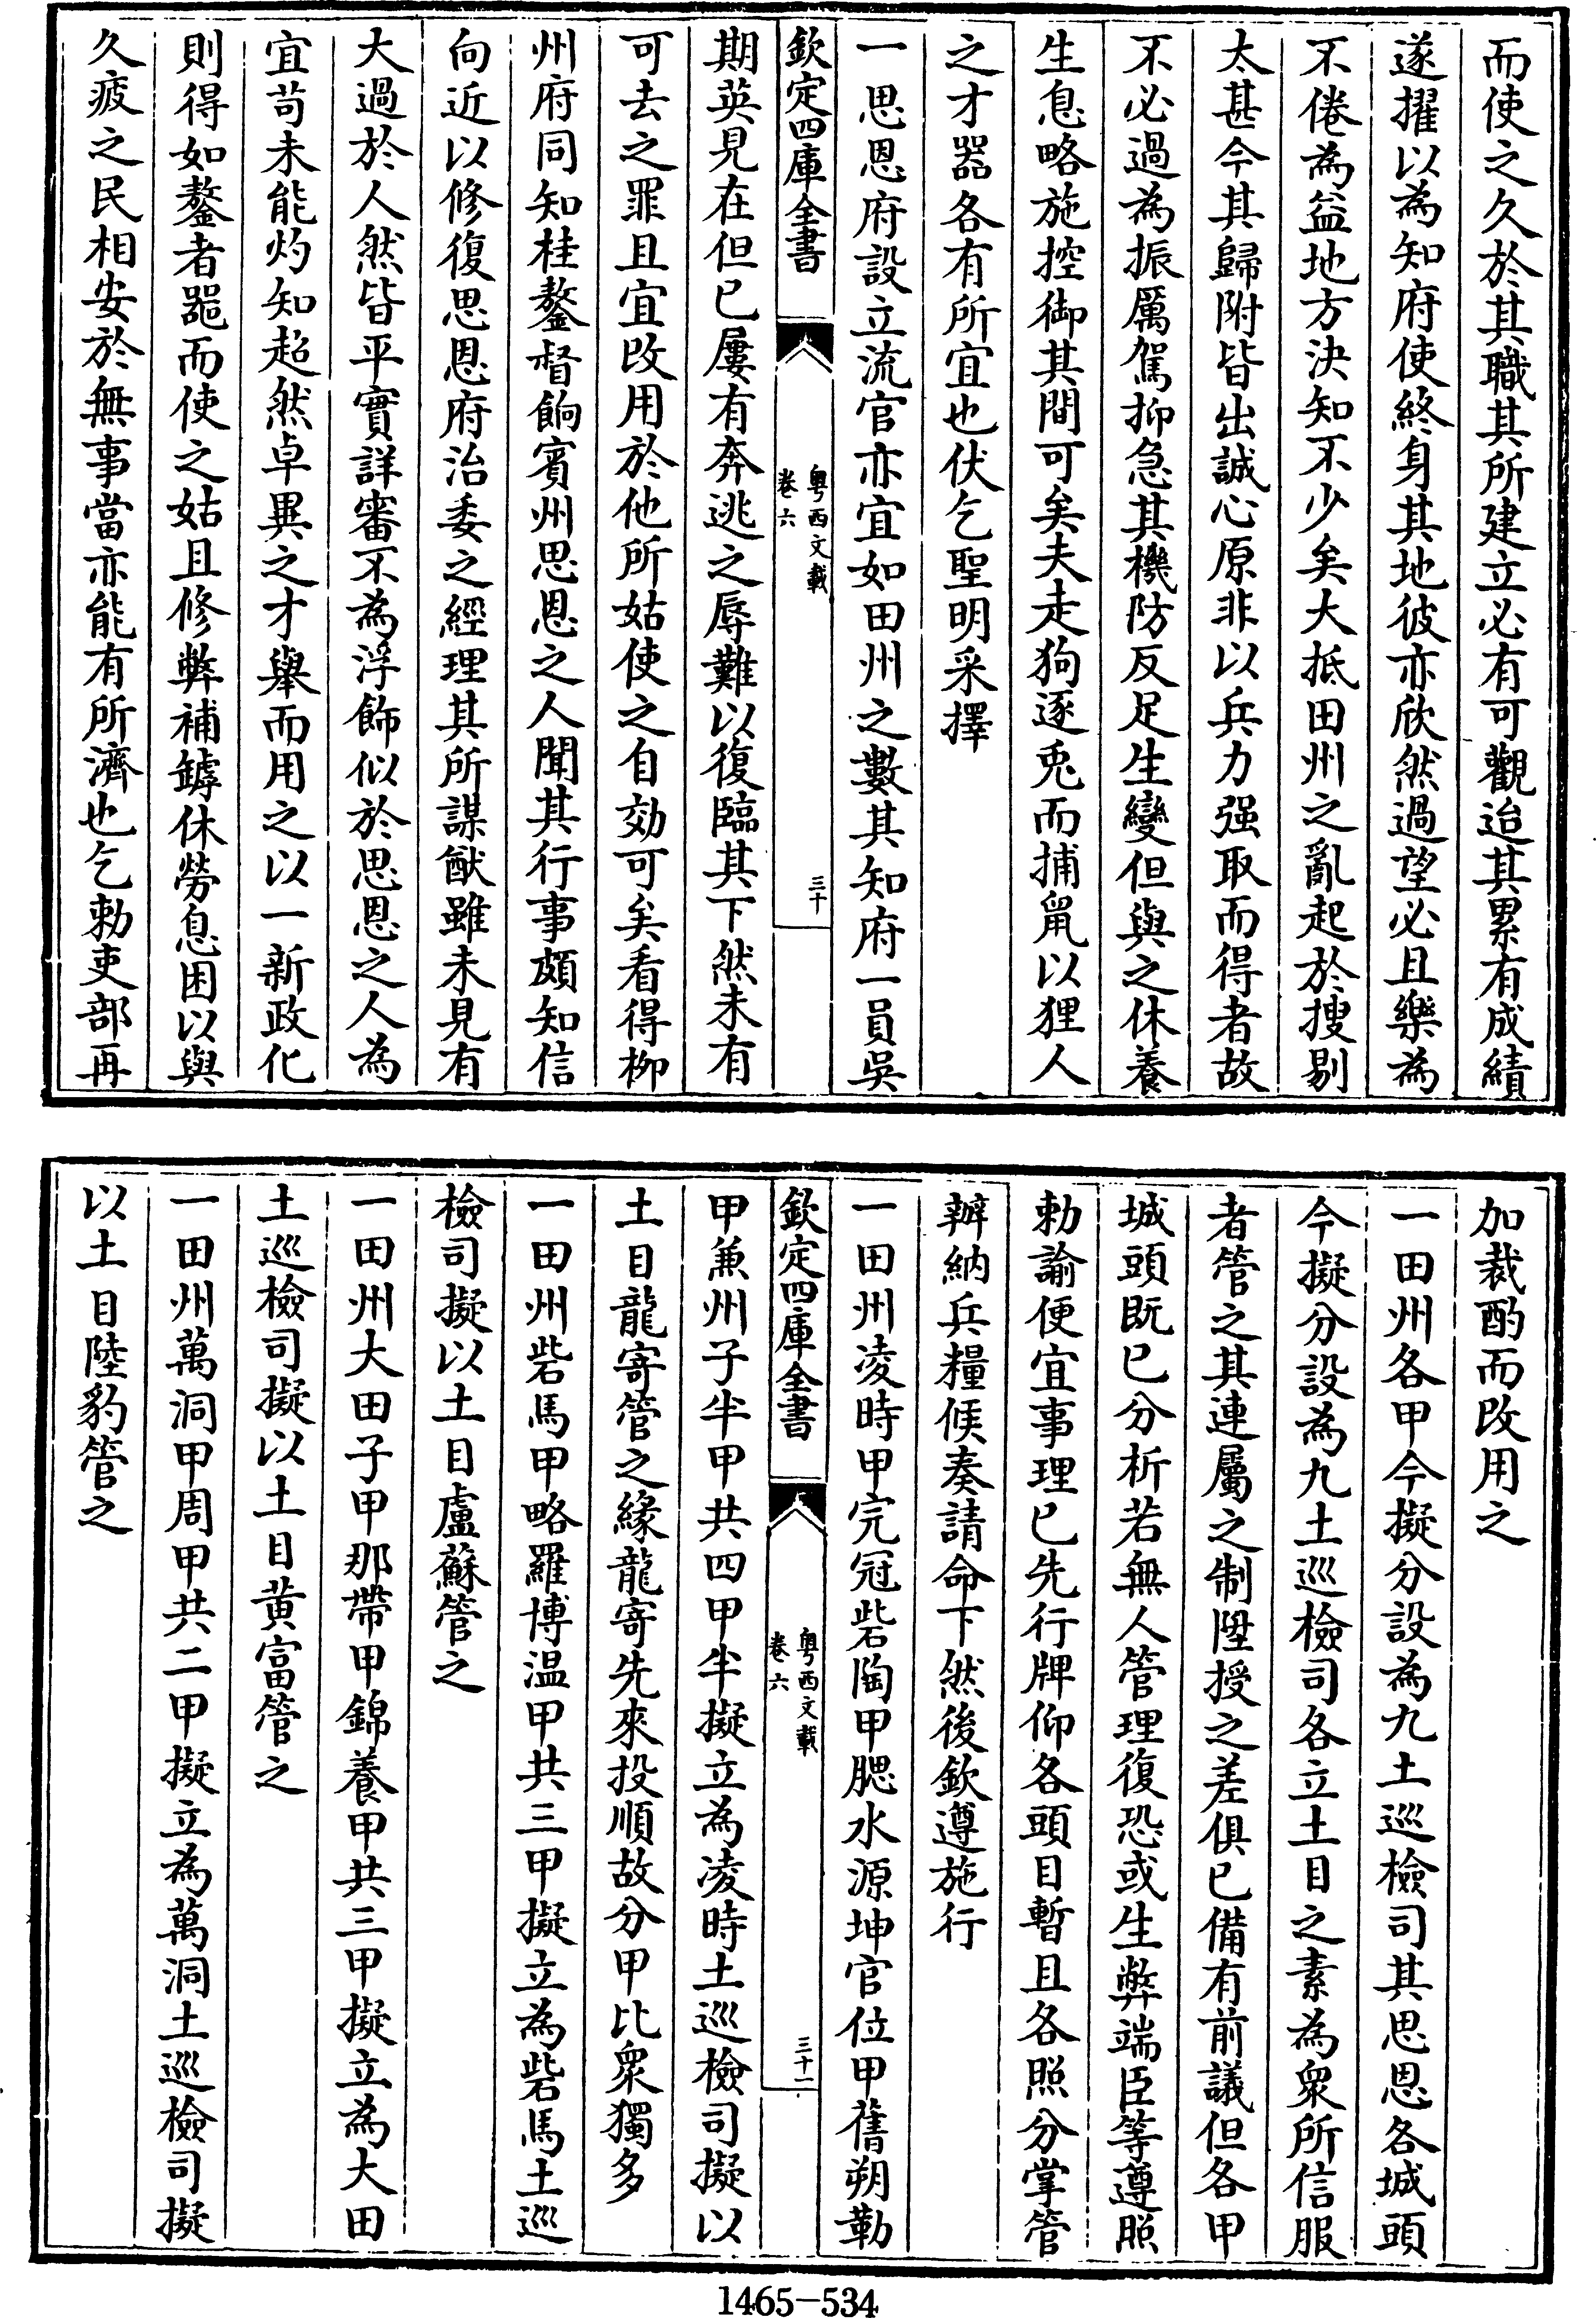 而使之久於其職其所建立必有可觀迨其累有成績
遂擢以為知府使終身其地彼亦欣然過望必且樂為
不倦為益地方決知不少矣大抵田州之亂起於搜剔
太甚今其歸附皆出誠心原非以兵力强取而得者故
不必過為振厲駕抑急其機防反足生變但與之休養
生息略施控御其間可矣夫走狗逐兎而捕鼠以狸人
之才器各有所宜也伏乞聖明采擇
一思恩府設立流官亦宜如田州之數其知府一員吳
欽定四庫全書
粤西文載
卷六
三十
期英見在但已屢有奔逃之辱難以復臨其下然未有
可去之罪且宜改用於他所姑使之自効可矣看得柳
州府同知桂鏊督餉賓州思恩之人聞其行事頗知信
向近以修復思恩府治委之經理其所謀猷雖未見有
大過於人然皆平實詳審不為浮飾似於思恩之人為
宜茍未能灼知超然卓異之才舉而用之以一新政化
則得如鏊者噐而使之姑且修弊補罅休勞息困以與
久疲之民相安於無事當亦能有所濟也乞勅吏部再
加裁酌而改用之
一田州各甲今擬分設為九土巡檢司其思恩各城頭
今擬分設為九土巡檢司各立土目之素為衆所信服
者管之其連屬之制陞授之差俱已備有前議但各甲
城頭既已分析若無人管理復恐或生弊端臣等遵照
勅諭便宜事理已先行牌仰各頭目暫且各照分掌管
辦納兵糧候奏請命下然後欽遵施行
一田州凌時甲完冠砦陶甲腮水源坤官位甲舊朔勒
欽定四庫全書
粤西文載
卷六
三十一
甲兼州子半甲共四甲半擬立為凌時土巡檢司擬以
土目龍寄管之緣龍寄先來投順故分甲比衆獨多
一田州砦馬甲略羅博温甲共三甲擬立為砦馬土巡
檢司擬以土目盧蘇管之
一田州大田子甲那帶甲錦養甲共三甲擬立為大田
土巡檢司擬以土目黄富管之
一田州萬洞甲周甲共二甲擬立為萬洞土巡檢司擬
以土目陸豹管之
1465-534